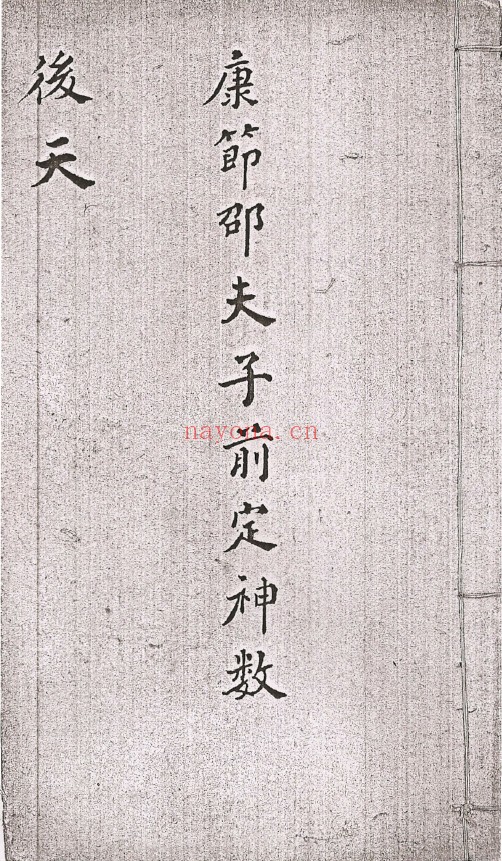 康節邵夫子前定神数
後天
nayona.cn